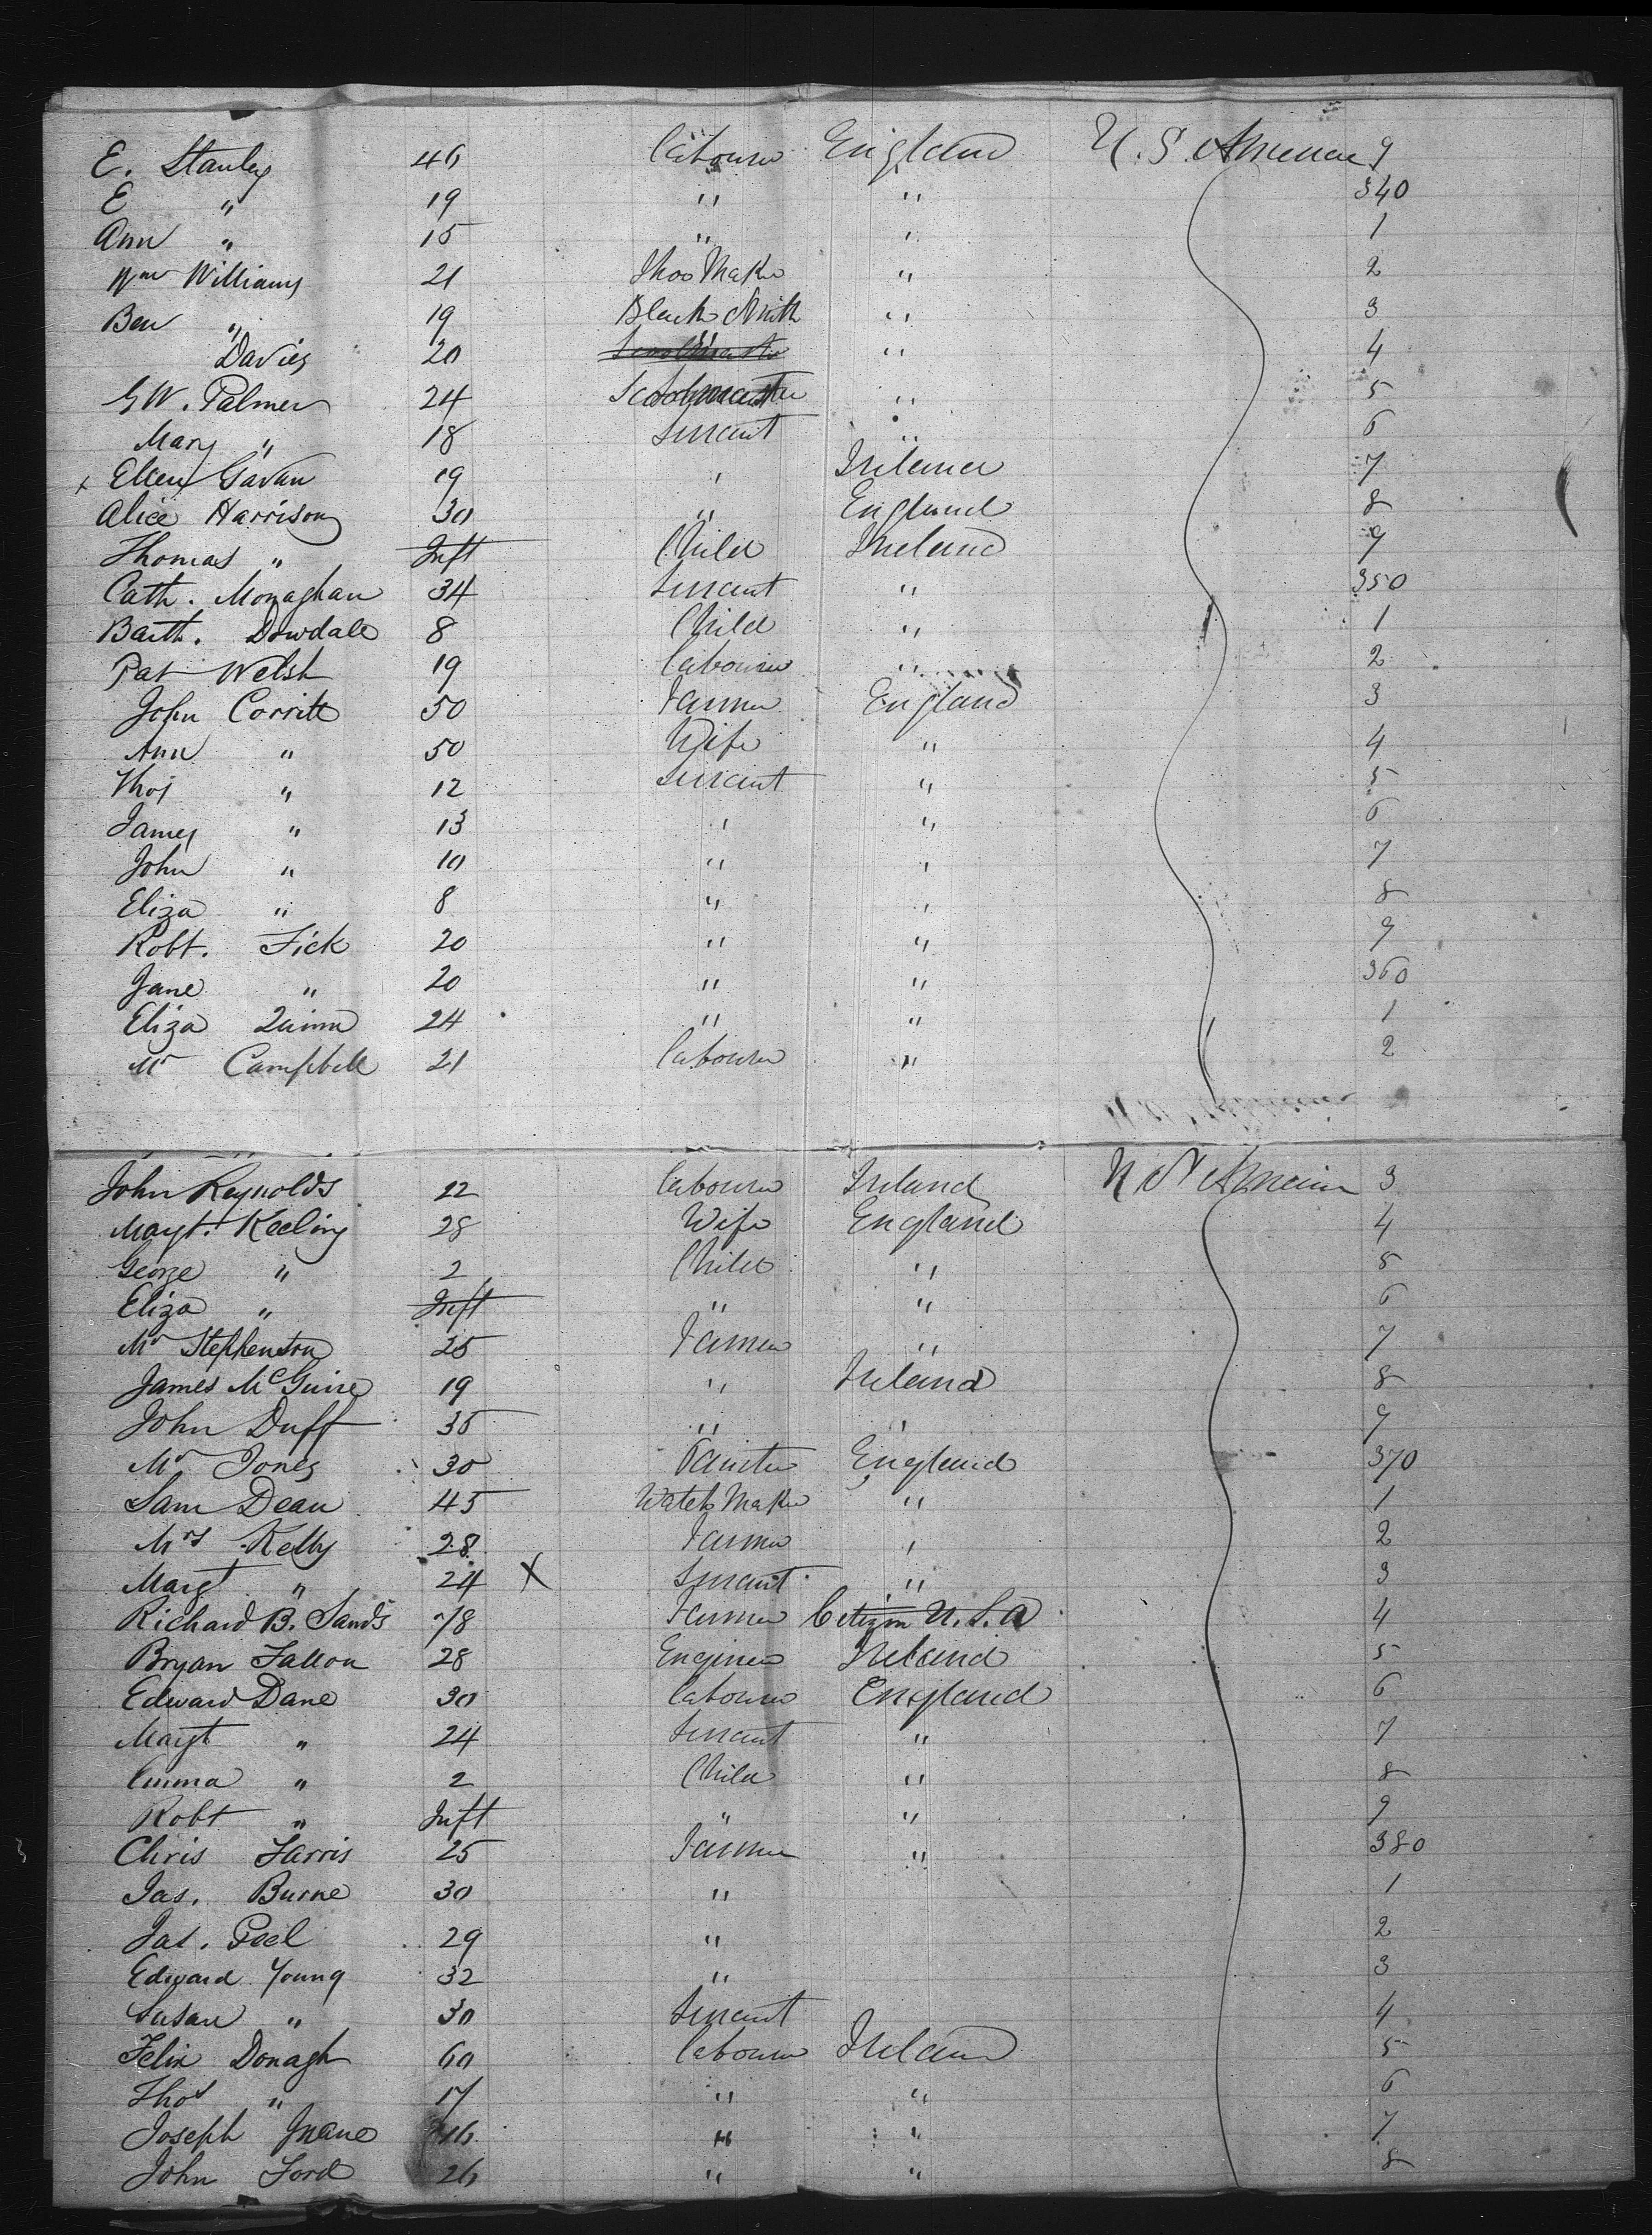 E. Stanley 46 Labourer England U.S. America 9
E " 19 " " 340
Ann " 15 " " 1
Wm Williams 21 Shoe Maker " 2
Ben " 19 Black Smith " 3
Davies 20 " " 4
G W. Palmer 24 Scoolmaster " 5
Mary " 18 Servant " 6
x Ellen Gavan 19 " Ireland 7
Alice Harrison 30 " England 8
Thomas " Inft Child Ireland 9
Cath. Monaghan 34 Servant " 350
Barth. Dowdale 8 Child " 1
Pat Welsh 19 Labourer " 2
John Corritt 50 Farmer England 3
Ann " 50 Wife " 4
Thos " 12 Servant " 5
James " 13 " " 6
John " 10 " " 7
Eliza " 8 " " 8
Robt. Fick 20 " " 9
Jane " 20 " " 360
Eliza Quinn 24 " " 1
Mr Campbell 21 Labourer " 2
John Reynolds 22 Labourer Ireland U S America 3
Margt. Keeling 28 Wife England 4
George " 2 Child " 5
Eliza " Inft " " 6
Mr Stephenson 25 Farmer " 7
James McGuire 19 " Ireland 8
John Duff 35 " " 9
Mr Jones 30 Painter England 370
Sam Dean 45 Watch Maker " 1
Mrs Kelly 28 Farmer " 2
Margt " 24 X Servant " 3
Richard B. Sands 78 Farmer Citizen U.S.A 4
Bryan Fallon 28 Engineer Ireland 5
Edward Dane 30 Labourer England 6
Margt " 24 Servant " 7
Emma " 2 Child " 8
Robt " Inft " " 9
Chris Farris 25 Farmer " 380
Jas. Burne 30 " 1
Jas. Peel 29 " 2
Edward Young 32 " 3
Susan " 30 Servant 4
Felix Donagh 60 Labourer Ireland 5
Thos " 17 " " 6
Joseph 46 " " 7
John Ford 26 " " 8